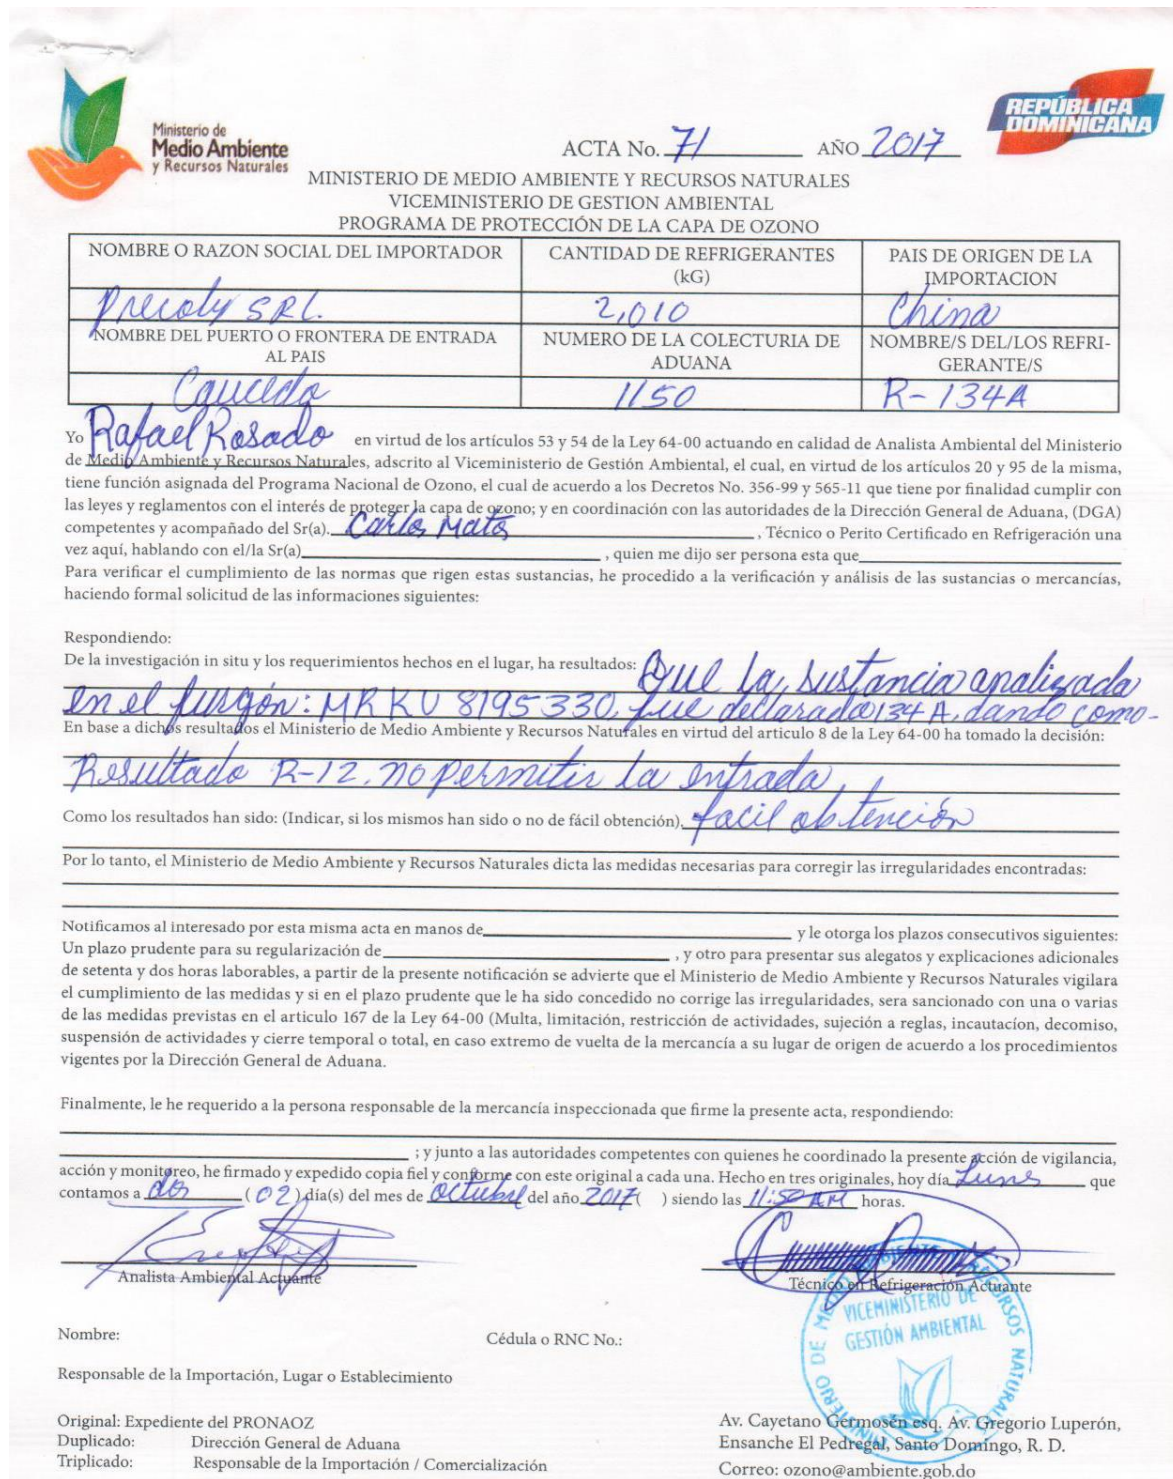 Ministerio de
Medio Ambiente
y Recursos Naturales
REPÚBLICA
DOMINICANA
ACTA No. 71 AÑO 2017
MINISTERIO DE MEDIO AMBIENTE Y RECURSOS NATURALES
VICEMINISTERIO DE GESTION AMBIENTAL
PROGRAMA DE PROTECCIÓN DE LA CAPA DE OZONO
NOMBRE O RAZON SOCIAL DEL IMPORTADOR
CANTIDAD DE REFRIGERANTES
(kG)
PAIS DE ORIGEN DE LA
IMPORTACION
SRL.
2,010
China
NOMBRE DEL PUERTO O FRONTERA DE ENTRADA
AL PAIS
NUMERO DE LA COLECTURIA DE
ADUANA
NOMBRE/S DEL/LOS REFRI-
GERANTE/S
Caucedo
1150
R-134A
Yo Rafael Rosado en virtud de los artículos 53 y 54 de la Ley 64-00 actuando en calidad de Analista Ambiental del Ministerio
de Medio Ambiente y Recursos Naturales, adscrito al Viceministerio de Gestión Ambiental, el cual, en virtud de los artículos 20 y 95 de la misma,
tiene función asignada del Programa Nacional de Ozono, el cual de acuerdo a los Decretos No. 356-99 y 565-11 que tiene por finalidad cumplir con
las leyes y reglamentos con el interés de proteger la capa de ozono; y en coordinación con las autoridades de la Dirección General de Aduana, (DGA)
competentes y acompañado del Sr(a). Carlos Matos , Técnico o Perito Certificado en Refrigeración una
vez aquí, hablando con el/la Sr(a) , quien me dijo ser persona esta que
Para verificar el cumplimiento de las normas que rigen estas sustancias, he procedido a la verificación y análisis de las sustancias o mercancías,
haciendo formal solicitud de las informaciones siguientes:
Respondiendo:
De la investigación in situ y los requerimientos hechos en el lugar, ha resultados: Que la sustancia analizada
en el furgón: MRKU 8195330, fue declarada 134A, dando como-
En base a dichos resultados el Ministerio de Medio Ambiente y Recursos Naturales en virtud del articulo 8 de la Ley 64-00 ha tomado la decisión:
Resultado R-12. no permitir la entrada,
Como los resultados han sido: (Indicar, si los mismos han sido o no de fácil obtención), facil obtención
Por lo tanto, el Ministerio de Medio Ambiente y Recursos Naturales dicta las medidas necesarias para corregir las irregularidades encontradas:
Notificamos al interesado por esta misma acta en manos de y le otorga los plazos consecutivos siguientes:
Un plazo prudente para su regularización de , y otro para presentar sus alegatos y explicaciones adicionales
de setenta y dos horas laborables, a partir de la presente notificación se advierte que el Ministerio de Medio Ambiente y Recursos Naturales vigilara
el cumplimiento de las medidas y si en el plazo prudente que le ha sido concedido no corrige las irregularidades, sera sancionado con una o varias
de las medidas previstas en el articulo 167 de la Ley 64-00 (Multa, limitación, restricción de actividades, sujeción a reglas, incautacíon, decomiso,
suspensión de actividades y cierre temporal o total, en caso extremo de vuelta de la mercancía a su lugar de origen de acuerdo a los procedimientos
vigentes por la Dirección General de Aduana.
Finalmente, le he requerido a la persona responsable de la mercancía inspeccionada que firme la presente acta, respondiendo:
; y junto a las autoridades competentes con quienes he coordinado la presente acción de vigilancia,
acción y monitoreo, he firmado y expedido copia fiel y conforme con este original a cada una. Hecho en tres originales, hoy día Lunes que
contamos a dos (02) día(s) del mes de octubre del año 2017 ( ) siendo las 11:50 AM horas.
Analista Ambiental Actuante
Técnico en Refrigeración Actuante
MINISTERIO DE MEDIO AMBIENTE Y RECURSOS NATURALES
VICEMINISTERIO DE
GESTIÓN AMBIENTAL
Nombre:
Cédula o RNC No.:
Responsable de la Importación, Lugar o Establecimiento
Original: Expediente del PRONAOZ
Duplicado: Dirección General de Aduana
Triplicado: Responsable de la Importación / Comercialización
Av. Cayetano Germosén esq. Av. Gregorio Luperón,
Ensanche El Pedregal, Santo Domingo, R. D.
Correo: ozono@ambiente.gob.do